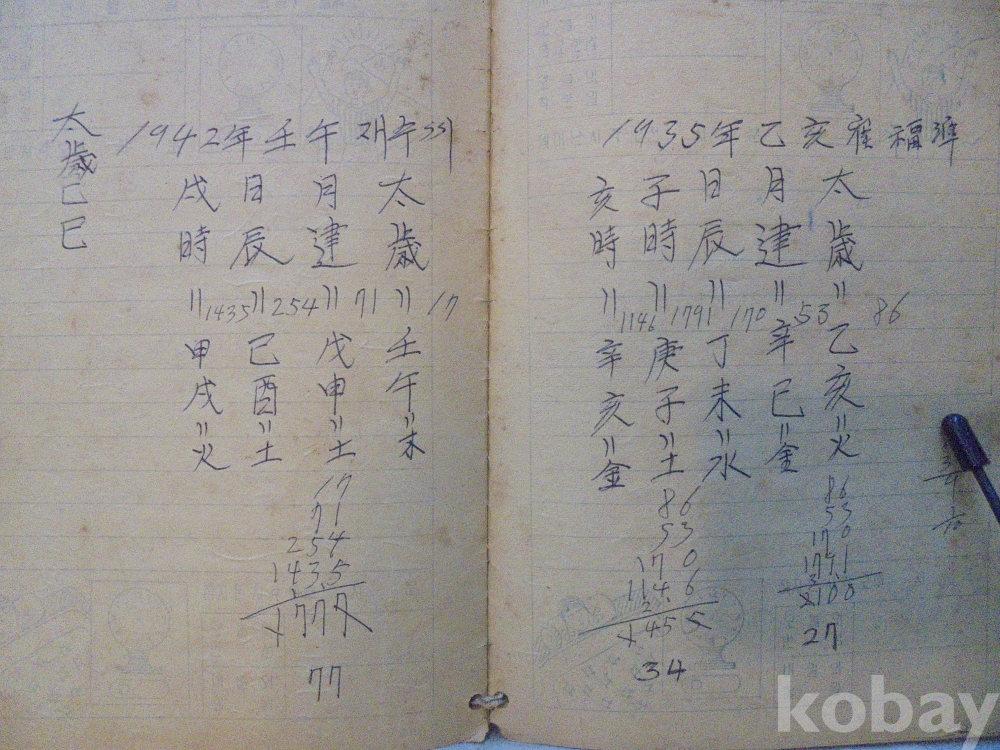 太歲己巳
1942年 壬午
太歲 = 17 壬午 = 木
月建 = 71 戊申 = 土
日辰 = 254 己酉 = 土
戌時 = 1435 甲戌 = 火
17
71
254
1435
1777
77
1935年 乙亥 崔福準
太歲 = 86 乙亥 = 火
月建 = 53 辛巳 = 金
日辰 = 170 丁未 = 水
子時 = 1791 庚子 = 土
亥時 = 1146 辛亥 = 金
86
53
170
1791
2100
27
86
53
170
1146
1455
34
kobay